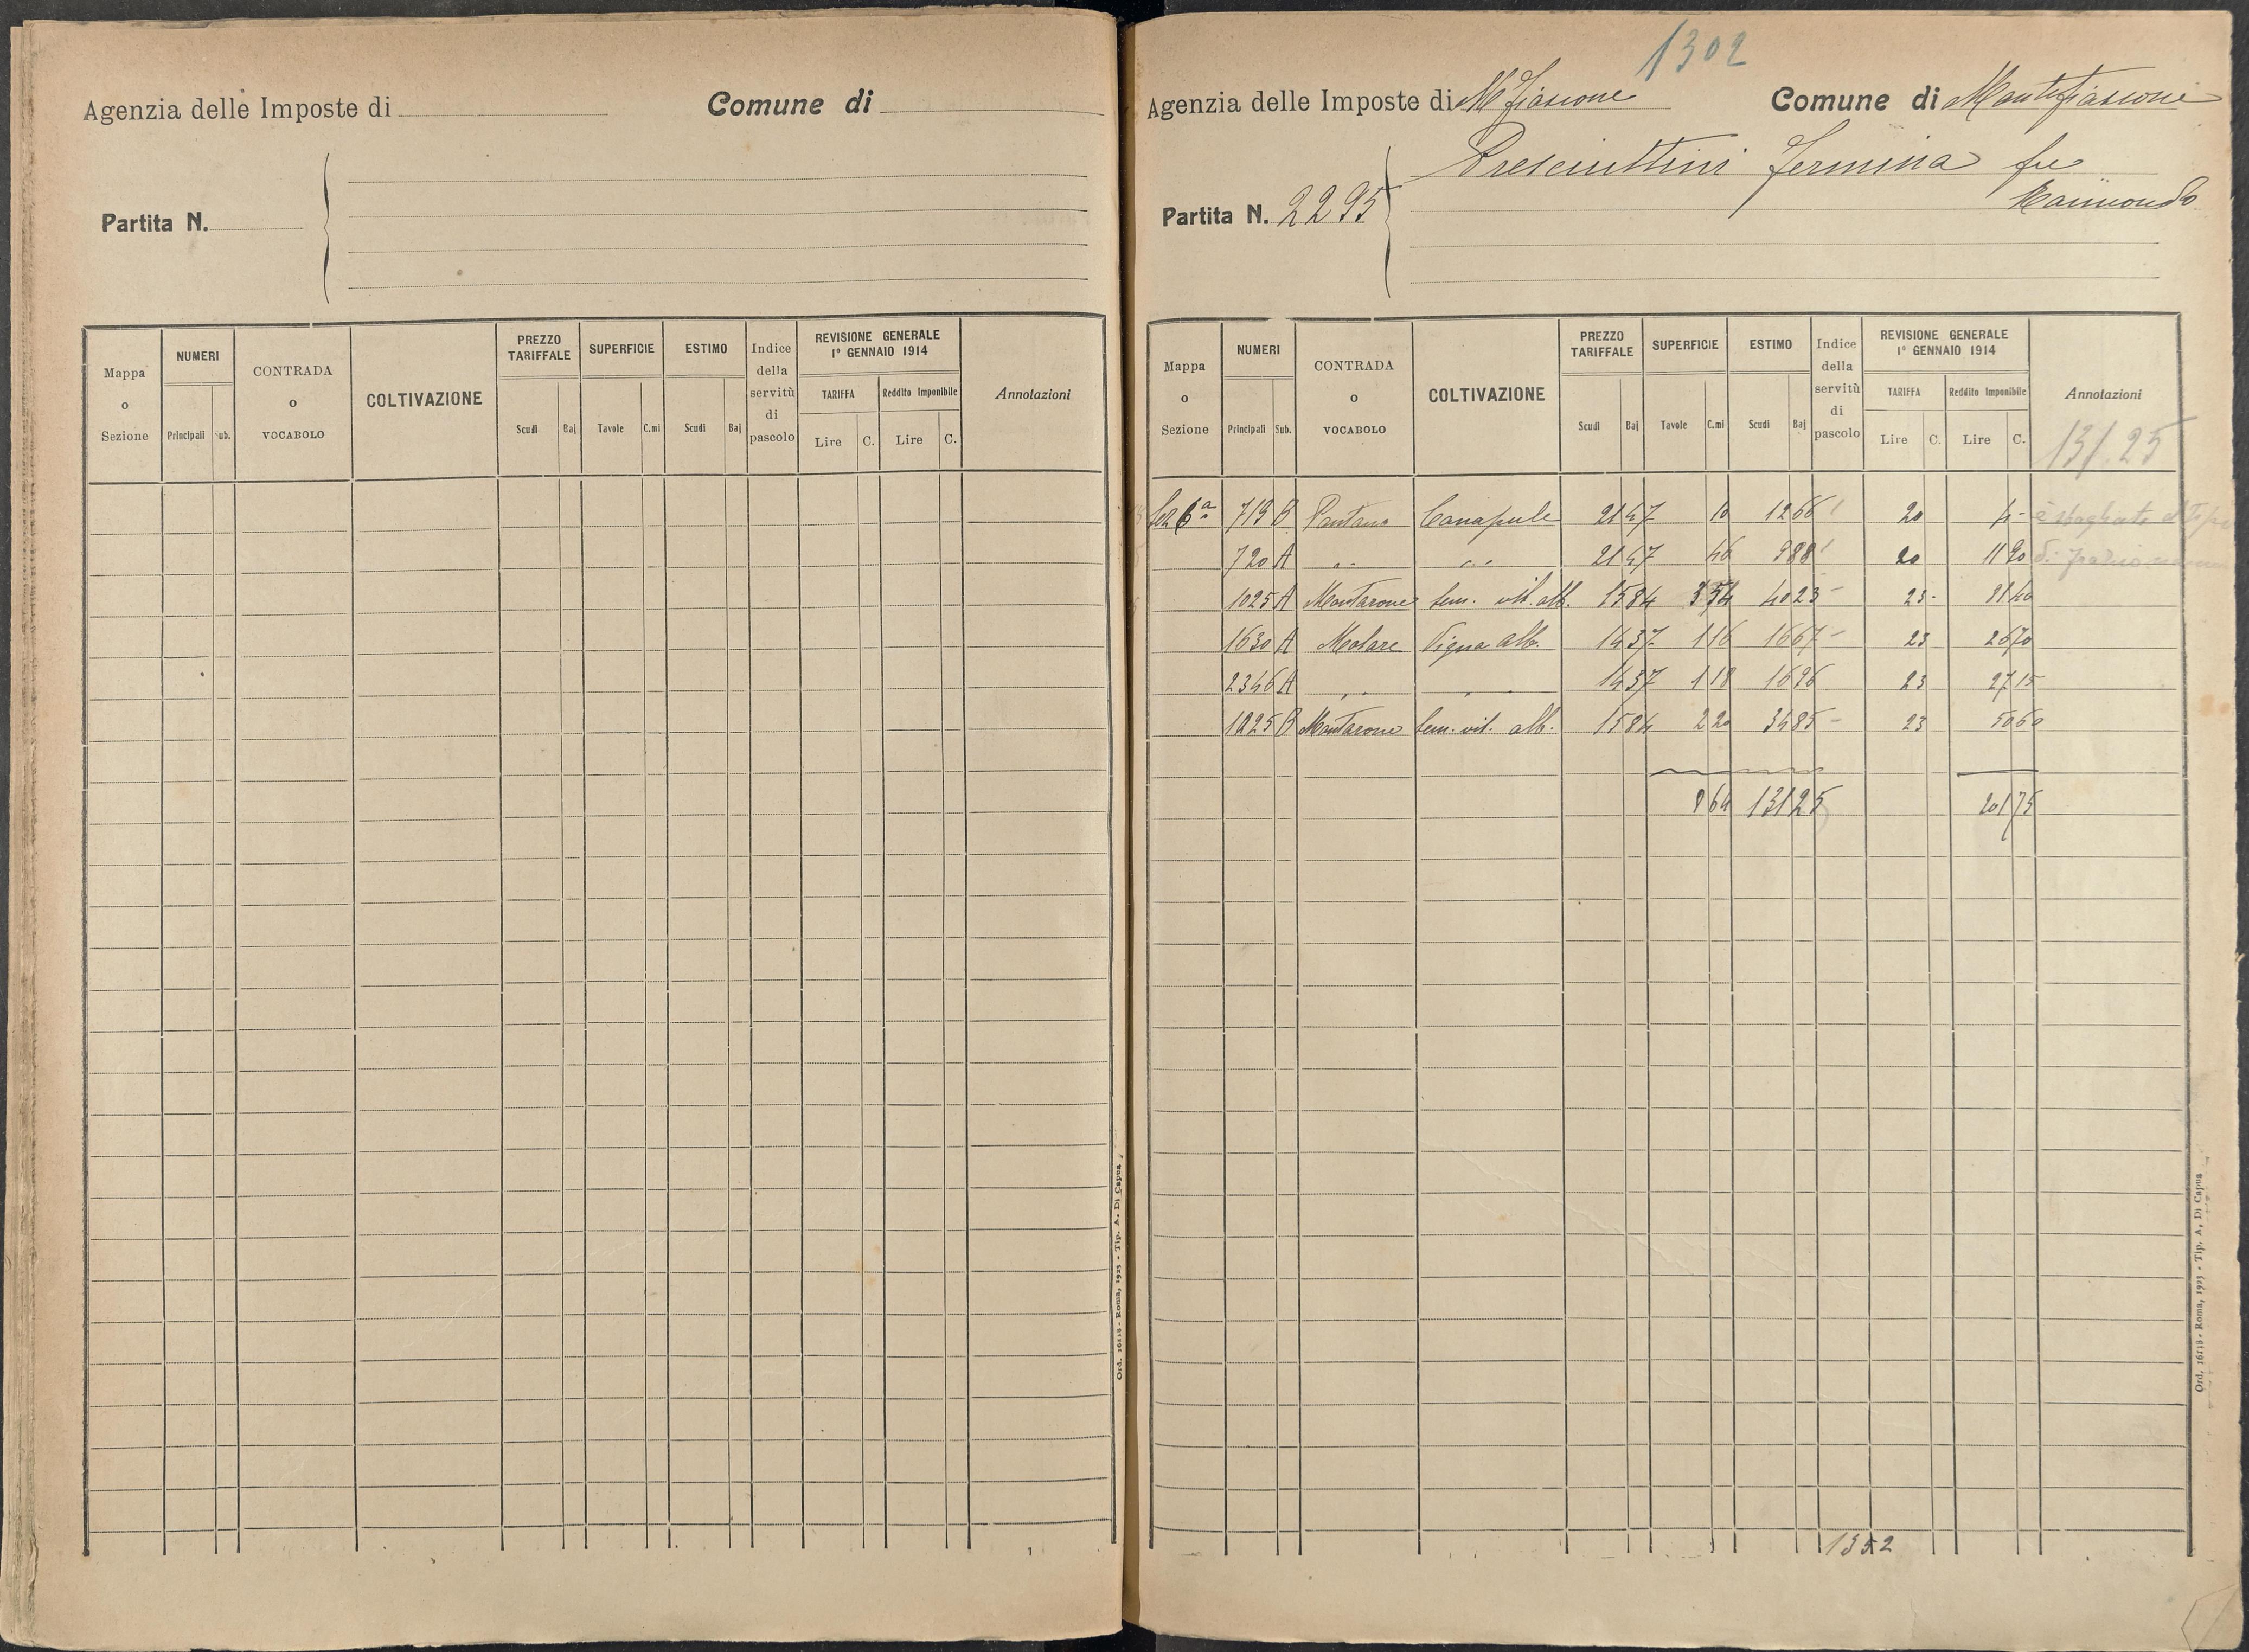 Agenzia delle Imposte di
Comune di
Partita N.
Mappa o Sezione
NUMERI
Principali
Sub.
CONTRADA o VOCABOLO
COLTIVAZIONE
PREZZO TARIFFALE
Scudi
Baj
SUPERFICIE
Tavole
C.mi
ESTIMO
Scudi
Baj
Indice della servitù di pascolo
REVISIONE GENERALE 1º GENNAIO 1914
TARIFFA
Lire
C.
Reddito Imponibile
Lire
C.
Annotazioni
Ord. 16118 - Roma, 1923 - Tip. A. Di Capua
1302
Agenzia delle Imposte di M Fiascone
Comune di Montefiascone
Partita N. 2295
Presciuttini Fermina fu
Raimondo
Mappa o Sezione
NUMERI
Principali
Sub.
CONTRADA o VOCABOLO
COLTIVAZIONE
PREZZO TARIFFALE
Scudi
Baj
SUPERFICIE
Tavole
C.mi
ESTIMO
Scudi
Baj
Indice della servitù di pascolo
REVISIONE GENERALE 1º GENNAIO 1914
TARIFFA
Lire
C.
Reddito Imponibile
Lire
C.
Annotazioni
131.25
Sez 6ª 719 B Pantano Canapule 21 47 10 12 66 20 4 - è sbagliato
720 A " " 21 47 46 9 88 20 11 20 di
1025 A Montarone Sem. vit. alb. 15 84 3 54 40 23 - 23 - 81 40
1630 A Molare Vigna alb. 14 37 1 16 16 67 - 23 26 70
2346 A " " 14 37 1 18 16 96 23 27 15
1025 B Montarone Sem. vit. alb. 15 84 2 20 34 85 - 23 50 60
8 64 131 25 201 75
1352
Ord. 16118 - Roma, 1923 - Tip. A. Di Capua